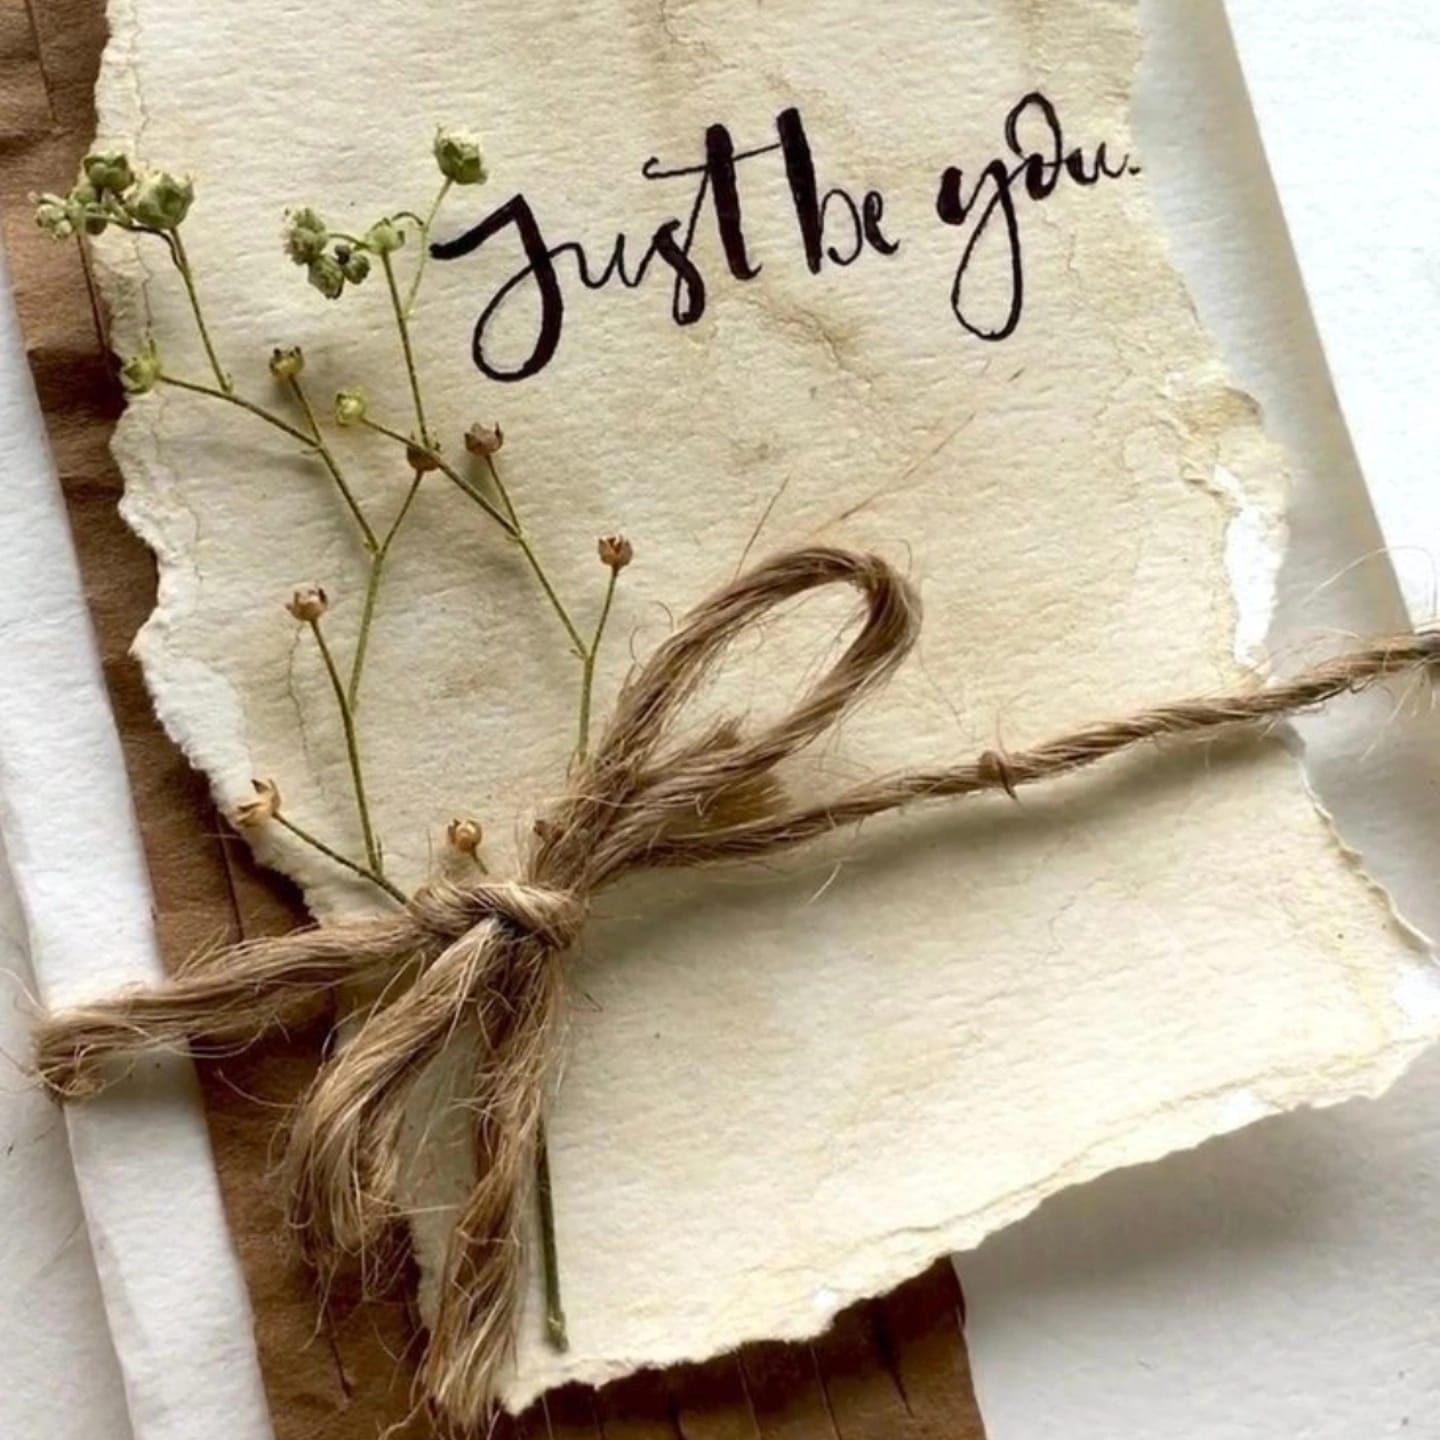 Just be you.